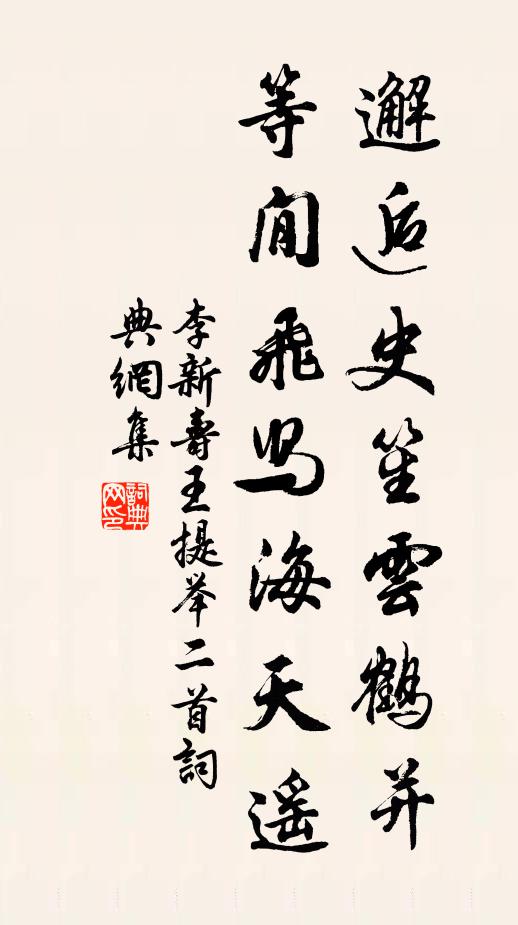 邂逅史笙雲鶴并
等閒飛舄海天遥
李新壽王提举二首詞
典網集
詞典网印